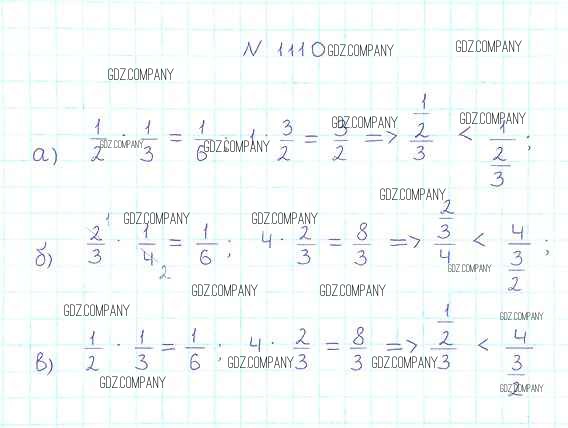 N 1110 GDZ.COMPANY GDZ.COMPANY
GDZ.COMPANY
а) 1/2 · 1/3 = 1/6; 1 · 3/2 = 3/2 => (1/2)/3 < 1/(2/3);
GDZ.COMPANY GDZ.COMPANY GDZ.COMPANY GDZ.COMPANY
GDZ.COMPANY
GDZ.COMPANY GDZ.COMPANY
б) 2/3 · 1/4 = 1/6; 4 · 2/3 = 8/3 => (2/3)/4 < 4/(3/2);
1 2
GDZ.COMPANY
GDZ.COMPANY GDZ.COMPANY
GDZ.COMPANY GDZ.COMPANY
в) 1/2 · 1/3 = 1/6; 4 · 2/3 = 8/3 => (1/2)/3 < 4/(3/2)
GDZ.COMPANY GDZ.COMPANY
GDZ.COMPANY GDZ.COMPANY